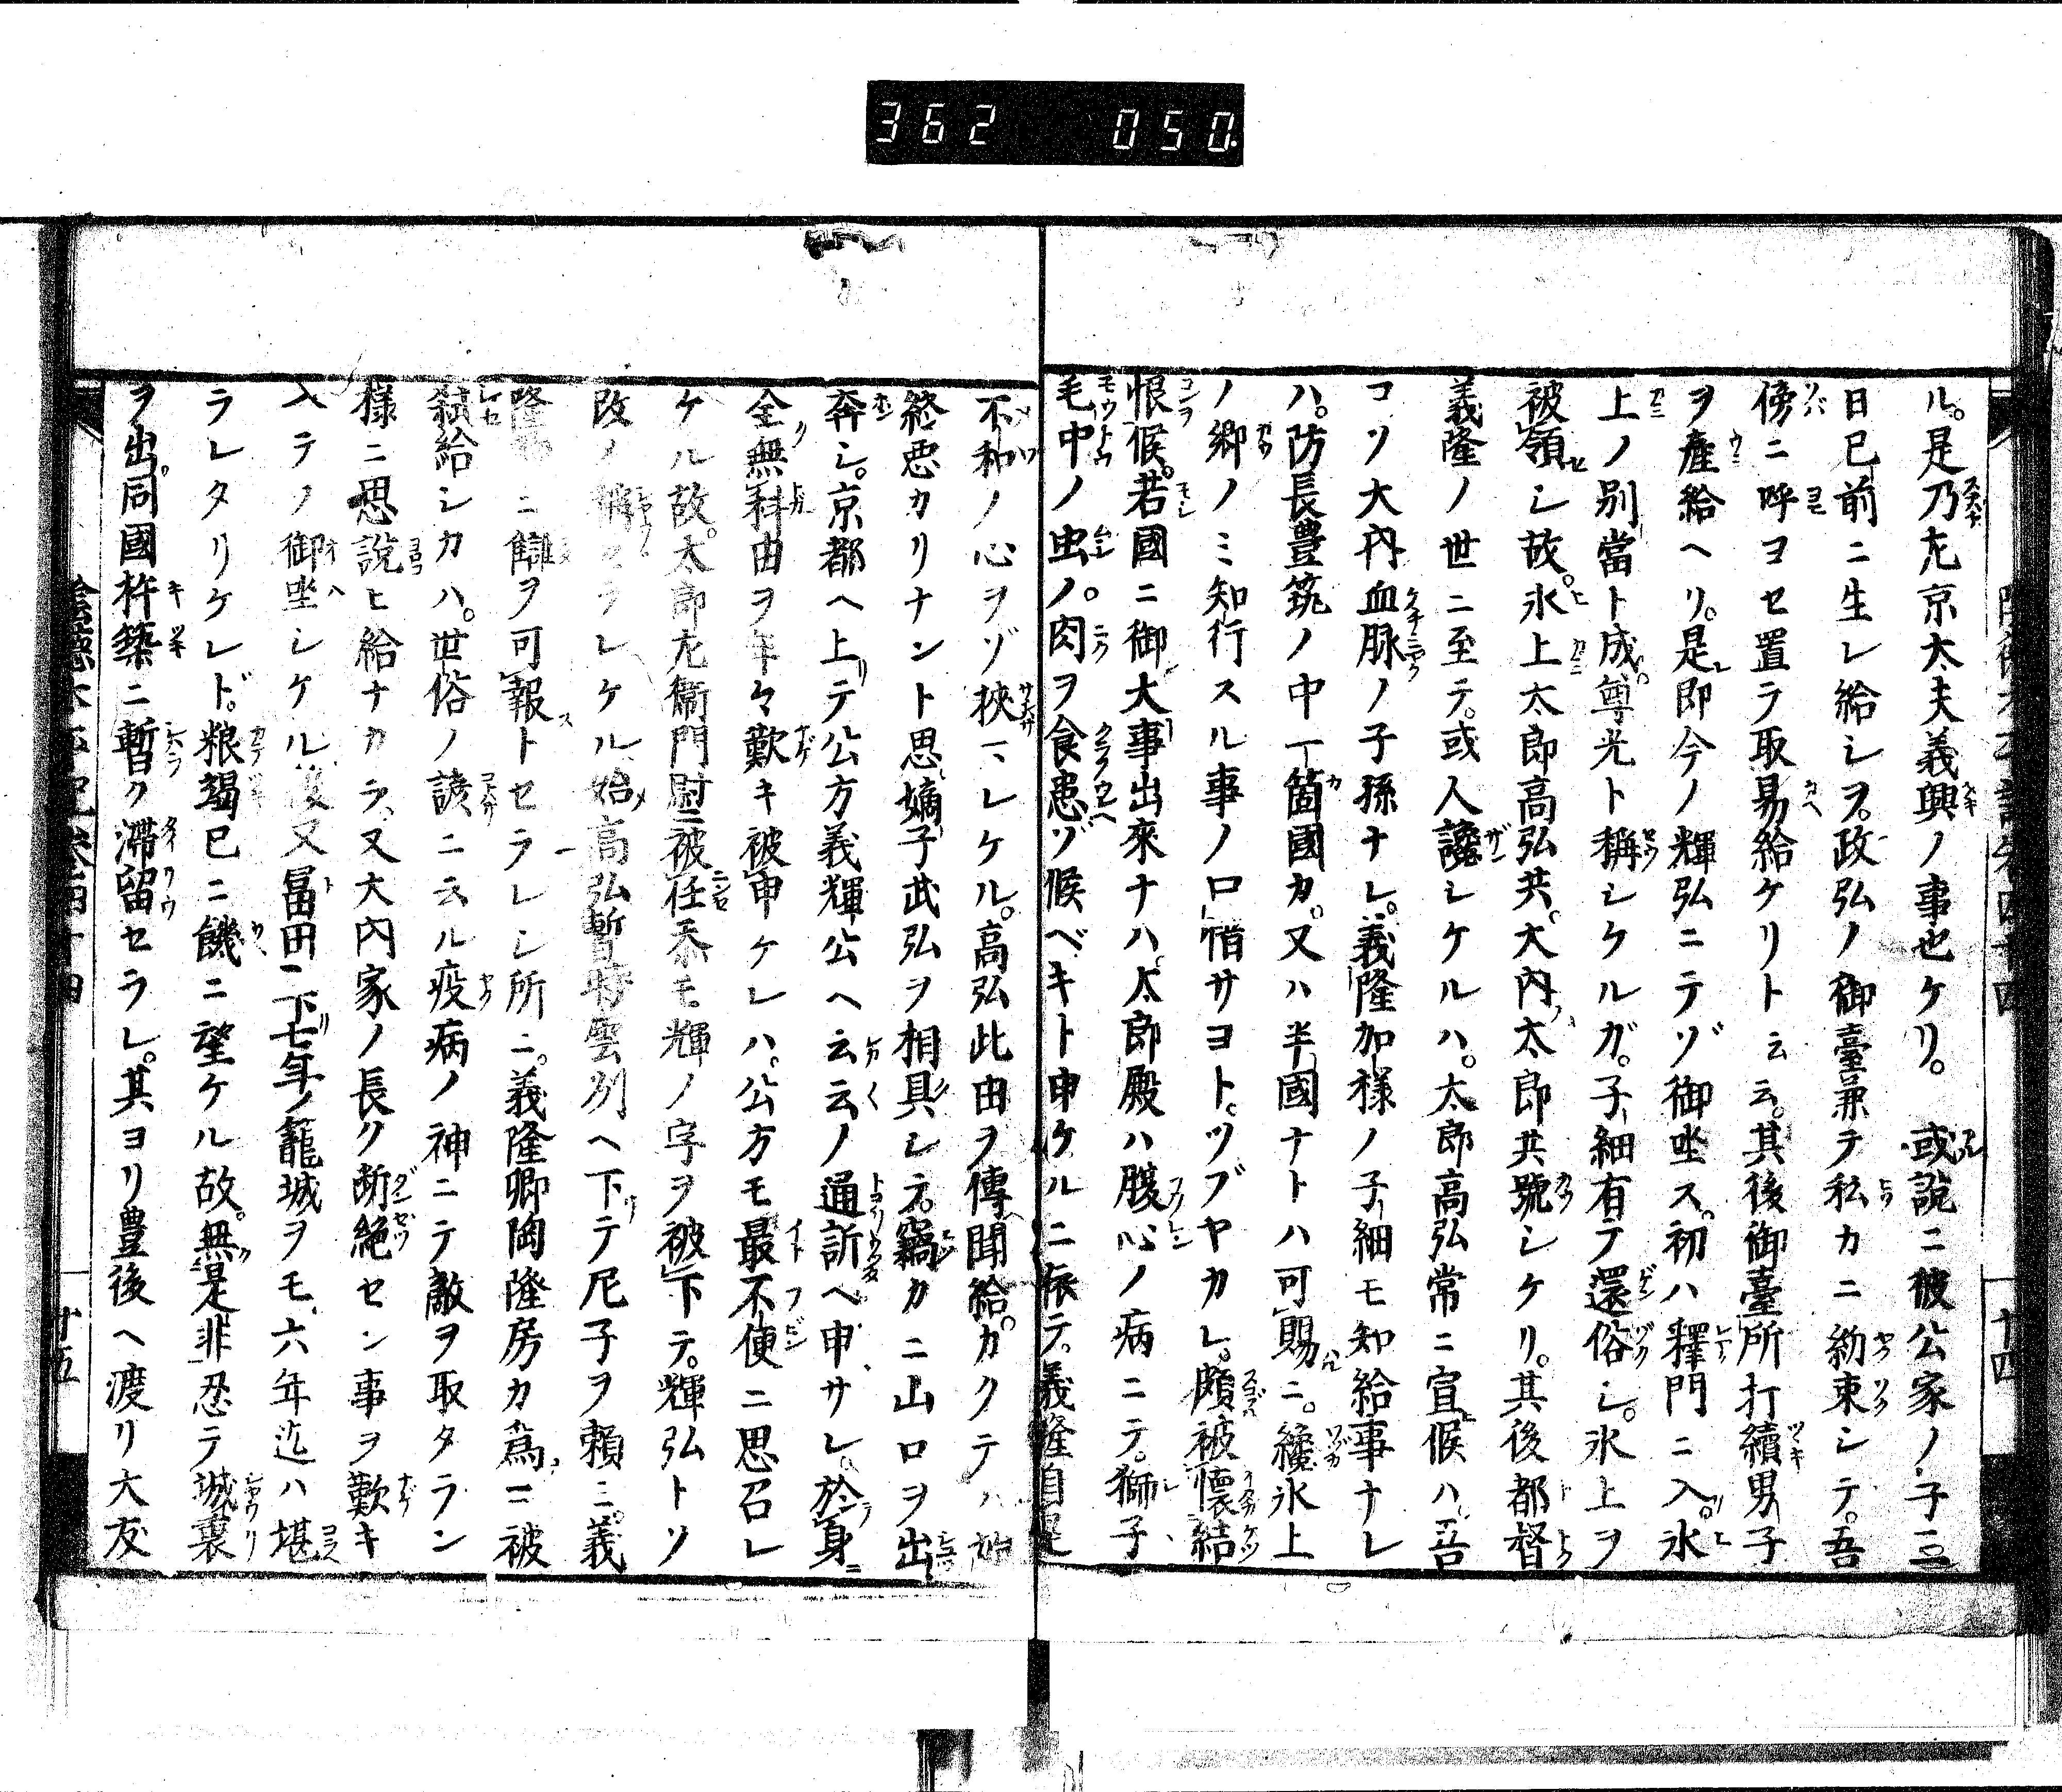 362 050
ル。是乃左京太夫義興ノ事也ケリ。或説ニ彼公家ノ子三
日已前ニ生レ給シヲ。政弘ノ御臺兼テ私カニ約束シテ。吾
傍ニ呼ヨセ置テ取易給ケリト云云。其後御臺所打續男子
ヲ産給ヘリ。是即今ノ輝弘ニテゾ御坐ス。初ハ釋門ニ入。氷
上ノ別當ト成。尊光ト稱シケルガ。子細有テ還俗シ。氷上ヲ
被領シ故。氷上太郎高弘共。大内太郎共號シケリ。其後都督
義隆ノ世ニ至テ。或人讒シケルハ。太郎高弘常ニ宣候ハ。吾
コソ大内血脉ノ子孫ナレ。義隆加様ノ子細モ知給事ナレ
ハ。防長豊筑ノ中一箇國カ。又ハ半國ナトハ可賜ニ。纔氷上
ノ郷ノミ知行スル事ノ口惜サヨト。ツブヤカレ。頗被懐結
恨候。若國ニ御大事出來ナハ。太郎殿ハ腹心ノ病ニテ。獅子
毛中ノ虫ノ。肉ヲ食患ゾ候ベキト申ケルニ依テ。義隆自是
不和ノ心ヲゾ挾マレケル。高弘此由ヲ傳聞給。カクテハ始
終悪カリナント思。嫡子武弘ヲ相具シテ。竊カニ山口ヲ出
奔シ。京都ヘ上テ公方義輝公ヘ云云ノ通訴ヘ申サレ。於身
全無科由ヲ年々歎キ被申ケレハ。公方モ最不便ニ思召レ
ケル故。太郎左衛門尉ニ被任忝モ輝ノ字ヲ被下テ。輝弘トソ
改ノ稱セラレケル。始高弘暫時雲州ヘ下テ尼子ヲ頼ミ。義
隆ニ讎ヲ可報トセラレシ所ニ。義隆卿陶隆房カ爲ニ被
弑給シカハ。世俗ノ諺ニ云ル疫病ノ神ニテ敵ヲ取タラン
様ニ思説ヒ給ナカラ。又大内家ノ長ク断絶セン事ヲ歎キ
入テノ御坐シケル。後又冨田ニ下七年ノ籠城ヲモ、六年迄ハ堪
ラレタリケレド。粮竭已ニ饑ニ望ケル故。無是非忍テ城裏
ヲ出。同國杵築ニ暫ク滞留セラレ。其ヨリ豊後ヘ渡リ大友
十四
十五